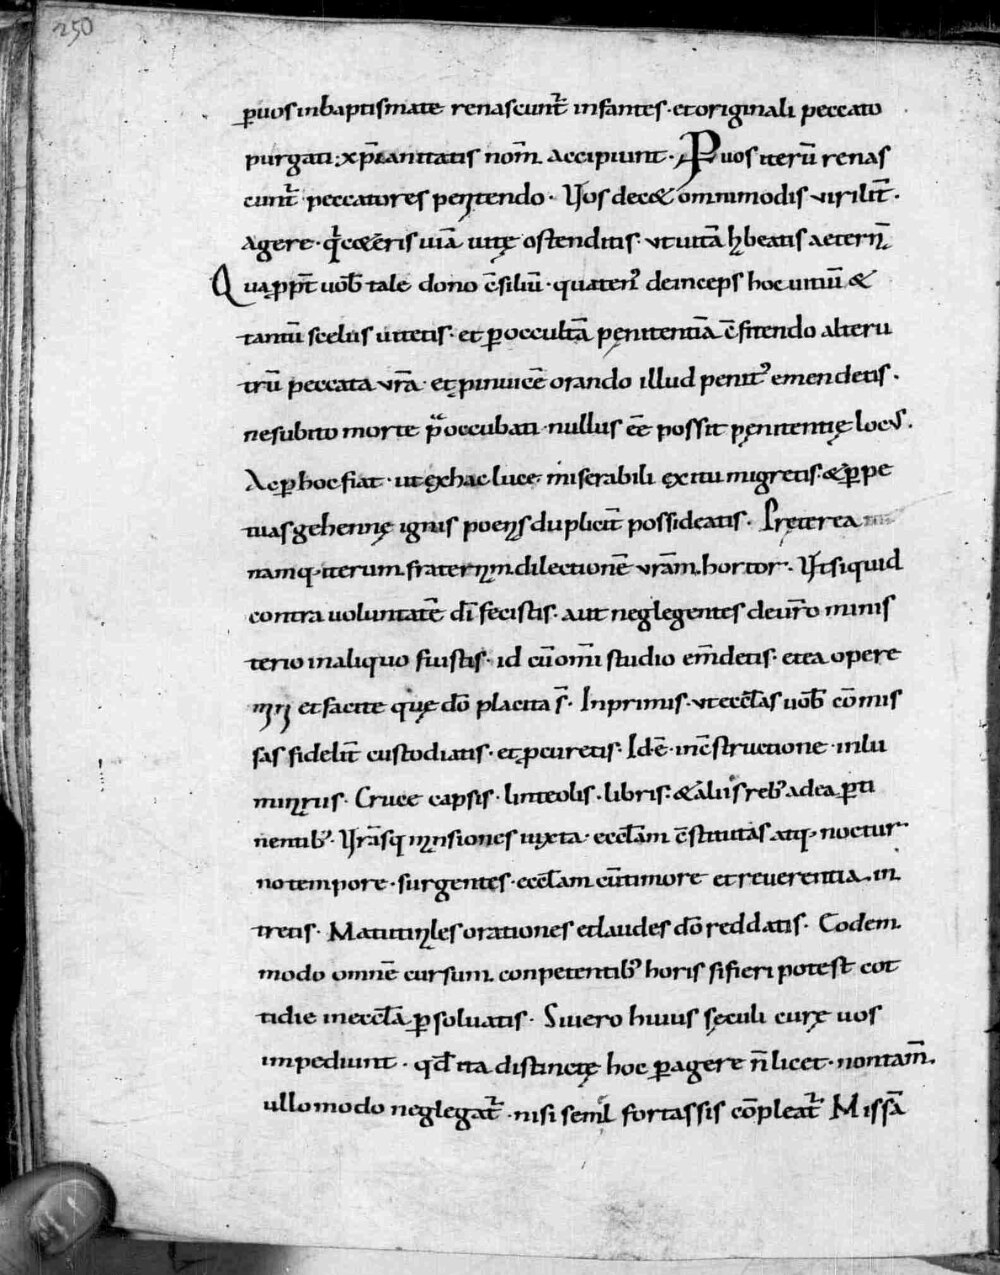 250
ꝑuos inbaptismate renascunt᷑ infantes · et originali peccato
purgati; xp̄ianitatis nom̄ accipiunt · Ꝑuos iterū renas
cunt᷑ peccatores penitendo · Vos decet omnimodis virilit̄ ·
agere · qui cęteris uiā uitę ostenditis · ut uitā hꝫbeatis aeternā
Quaꝓpt̄ uob̄ tale dono c̄siliū · quaten᷒ deinceps hoc uitiū &
tantū scelus uitetis · et ꝑoccultā penitentiā c̄fitendo alteru
trū peccata vr̄a · et ꝑinuicē orando illud penit᷒ emendetis ·
ne subito morte p̄occubati nullus eē possit penitentię locus ·
Ac ꝑ hoc fiat · ut ex hac luce miserabili exitu migretis · & ꝑpe
tuas gehennę ignis poenas duplicit̄ possideatis · Pręterea
namq· iterum fraternam dilectionē vr̄am hortor · Vt siquid
contra uoluntatē dī fecistis · aut neglegentes de ur̄o minis
terio in aliquo fuistis · id cū om̄i studio em̄detis · et ea opere
et facite quę dō placita s̄ · Inprimis · ut ecclas uob̄ cōmis
sas fidelit̄ custodiatis · et ꝓcuretis · Idē · in c̄structione · in lu
minariis · Cruce capsis · linteolis · libris · & aliis reb᷒ ad ea ꝑti
nentib᷒ · Vr̄asq mansiones iuxta · eccłam c̄stitutas atq· noctur
no tempore · surgentes · eccłam cū timore et reuerentia · in
tretis · Matutinales orationes et laudes dō reddatis · Eodem
modo omnē cursum conpetentib᷒ horis si fieri potest cot
tidie in eccłā ꝑsoluatis · Si uero huius sęculi curę uos
impediunt · qd̄ ita distinctę hoc ꝑagere n̄ licet · non tam̄ ·
ullo modo neglegat᷑ · nisi semł fortassis cōpleat᷑ Missā